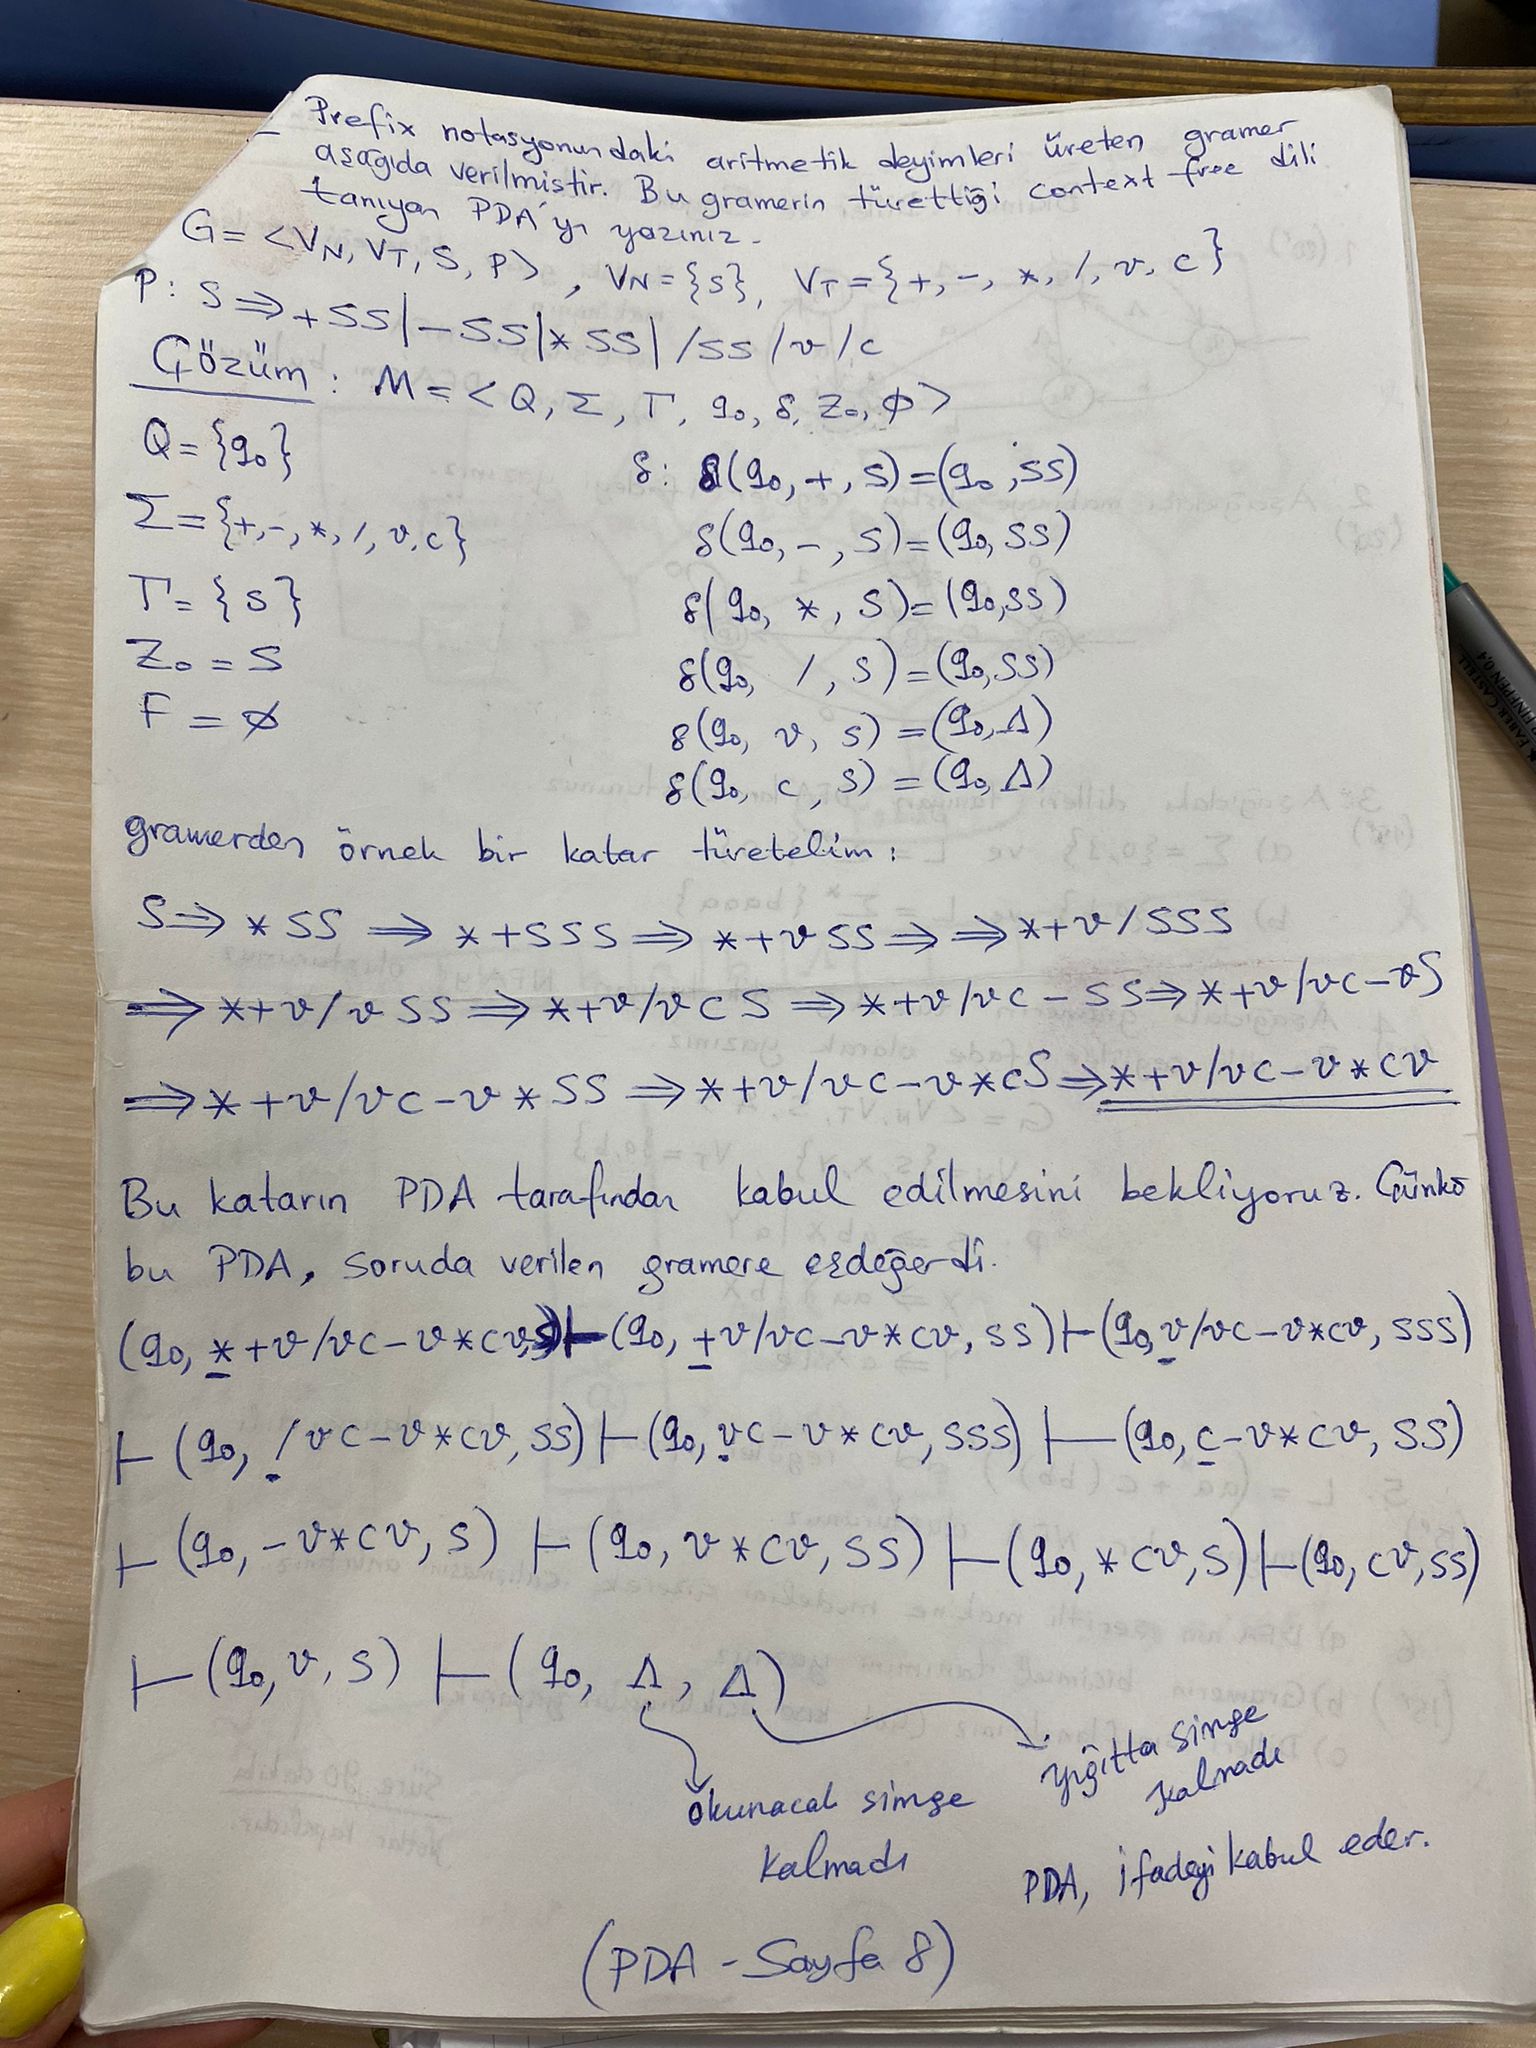 - Prefix notasyonundaki aritmetik deyimleri üreten gramer
aşağıda verilmiştir. Bu gramerin türettiği context free dili
tanıyan PDA'yı yazınız.
G = <VN, VT, S, P>, VN = {S}, VT = {+, -, *, /, v, c}
P: S ⇒ +SS | -SS | *SS | /SS / v / c
Çözüm: M = < Q, Σ, Γ, q0, δ, Z0, ϕ >
Q = {q0}
δ: δ(q0, +, S) = (q0, SS)
Σ = {+, -, *, /, v, c}
δ(q0, -, S) = (q0, SS)
Γ = {S}
δ(q0, *, S) = (q0, SS)
Z0 = S
δ(q0, /, S) = (q0, SS)
F = ϕ
δ(q0, v, S) = (q0, Λ)
δ(q0, c, S) = (q0, Λ)
gramerden örnek bir katar türetelim:
S ⇒ *SS ⇒ *+SSS ⇒ *+vSS ⇒ ⇒ *+v/SSS
⇒ *+v/vSS ⇒ *+v/vcS ⇒ *+v/vc-SS ⇒ *+v/vc-vS
⇒ *+v/vc-v*SS ⇒ *+v/vc-v*cS ⇒ *+v/vc-v*cv
Bu katarın PDA tarafından kabul edilmesini bekliyoruz. Çünkü
bu PDA, soruda verilen gramere eşdeğerdi.
(q0, *+v/vc-v*cv,S) ⊢ (q0, +v/vc-v*cv, SS) ⊢ (q0, v/vc-v*cv, SSS)
⊢ (q0, /vc-v*cv, SS) ⊢ (q0, vc-v*cv, SSS) ⊢ (q0, c-v*cv, SS)
⊢ (q0, -v*cv, S) ⊢ (q0, v*cv, SS) ⊢ (q0, *cv, S) ⊢ (q0, cv, SS)
⊢ (q0, v, S) ⊢ (q0, Λ, Λ)
yığıtta simge
kalmadı
okunacak simge
kalmadı
PDA, ifadeyi kabul eder.
(PDA - Sayfa 8)